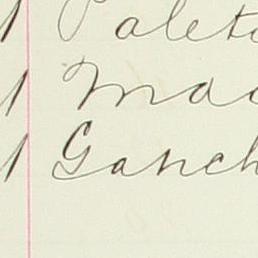 1 Paleto
1 Mad
1 Ganch